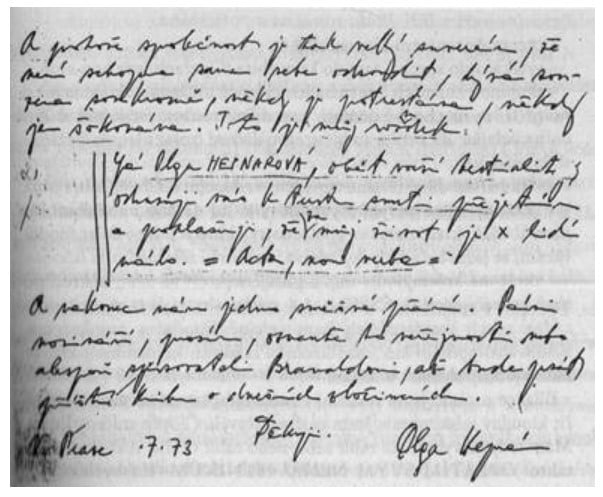 A protože společnost je tak velký suverén, že
není schopna sama sebe odsoudit, bývá sou-
zena soukromě, někdy je potrestána, někdy
je šokována. Toto je můj rozsudek:
Já Olga HEPNAROVÁ, oběť vaší bestiality
odsuzuji vás k trestu smrti přejetím
a prohlašuji, že za můj život je x lidí
málo. = Acta, non verba =
A nakonec mám jedno směšné přání. Páni
novináři, prosím, oznamte to veřejnosti nebo
alespoň spisovateli Branaldovi, až bude psát
příští knihu o dnešních zločincích
V Praze .7.73 Děkuji. Olga Hepnar